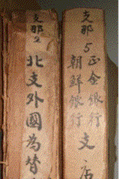 支那2
北支外國為替
支那5
正金銀行
朝鮮銀行
文